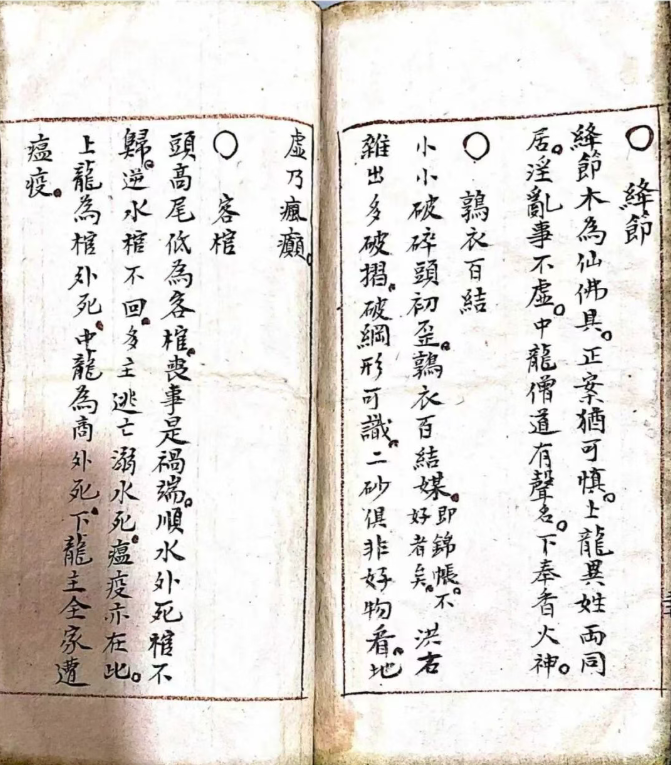 ○ 絳節
絳節木為仙佛具。正案猶可慎。上龍異姓両同
居。淫亂事不虛。中龍僧道有聲名。下奉香火神。
○ 鶉衣百結
小小破碎頭初歪。鶉衣百結媒。即錦帳。不好者矣。 洪右
雜出多破摺。破綱形可識。二砂俱非好物看。地
虛乃瘋癲。
○ 客棺
頭高尾低為客棺。喪事是禍端。順水外死棺不
歸。逆水棺不回。多主逃亡溺水死。瘟疫亦在此。
上龍為棺外死。中龍為商外死。下龍主全家遭
瘟疫。